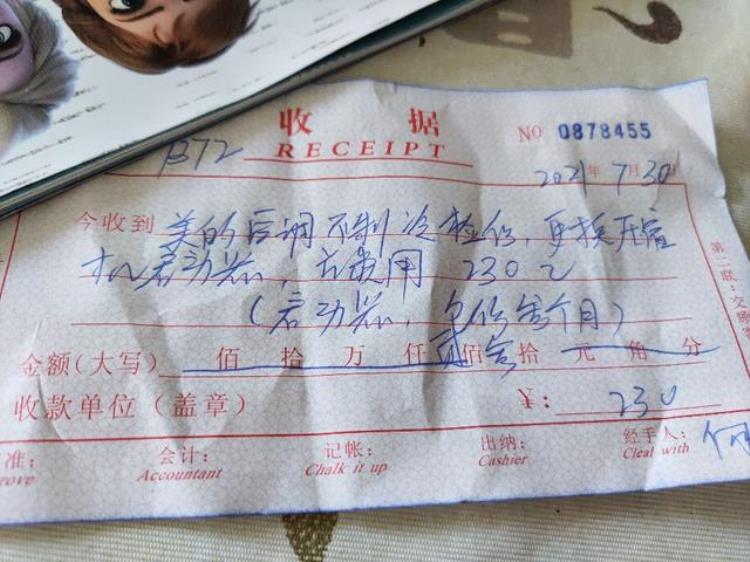 收 据
NO 0878455
B72 RECEIPT
2021年 7月30日
今收到 美的空调不制冷检修,更换压缩
机启动器,共费用 230元
(启动器,包修叁个月)
金额(大写) 佰 拾 万 仟 贰 佰 叁 拾 元 角 分
收款单位(盖章) ¥: 230
准: 会计: 记帐: 出纳: 经手人: 何
rove Accountant Chalk it up Cashier Cleal with
第二联:交